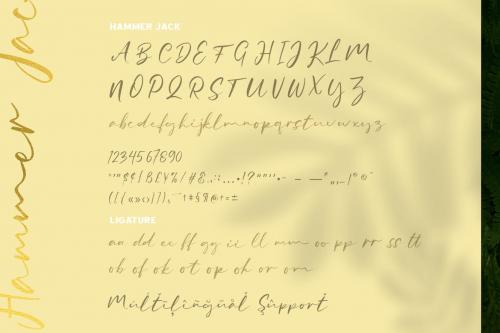 Hammer Jack
HAMMER JACK
A B C D E F G H I J K L M
N O P Q R S T U V W X Y Z
a b c d e f g h i j k l m n o p q r s t u v w x y z
1 2 3 4 5 6 7 8 9 0
LIGATURE
aa dd ee ff gg ii ll mm oo pp rr ss tt
ob of ok ot op oh or om
Multilingual Support